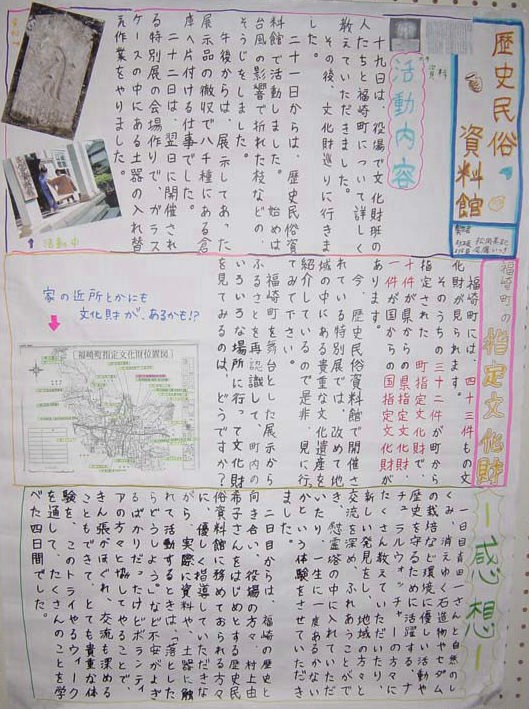 歴史民俗
資料館
資料
活動内容
十九日は、役場で文化財班の
人たちと福崎町について詳しく
教えていただきました。
その後、文化財巡りに行きま
した。
二十一日からは、歴史民俗資
料館で活動しました。始めは
台風の影響で折れた枝などの、
そうじをしました。
午後からは、展示してあった
展示品の徹収で八千種にある倉
庫へ片付ける仕事でした。
二十二日は、翌日に開催され
る特別展の会場作りで、ガラス
ケースの中にある土器の入れ替
え作業をやりました。
活動中
福崎町の
指定文化財
福崎町には、四十三件もの文
化財が見られます。
そのうちの三十二件が町から
指定された町指定文化財で、
十件が県からの県指定文化財、
一件が国からの国指定文化財が
あります。
今、歴史民俗資料館で開催さ
れている特別展では、改めて地
域の中にある貴重な文化遺産を
紹介しているので是非、見に行っ
てみて下さい。
福崎町を舞台とした展示から
ふるさとを再認識して、町内の
いろいろな場所に行って文化財
を見てみるのは、どうですか？
家の近所とかにも
文化財が、あるかも!?
福崎町指定文化財位置図
感想
一日目、吉田一さんと自然のし
くみ、消えゆく石造物やセダム
の栽培など環境に優しい活動や
歴史を守るために活躍する、ナ
チュラルウォッチャーの方々に
たくさん教えていただいたり、
新しい発見をし、地域の方々と
交流を深め、ふれあうことがで
き、慰霊塔の中に入れていただ
いたり、一生に一度あるかない
かという体験をさせていただき
ました。
二日目からは、福崎の歴史と
向き合い、役場の方々、村上由
希子さんをはじめとする歴史民
俗資料館に務めておられる方々
に、優しく指導していただきな
がら、実際に資料や、土器に触
れて活動するときは、「落とした
らどうしよう」など不安がよぎ
るばかりだったけどボランティ
アの方々と協してやることで、
きん張がほぐれ、交流も深める
こともできて、とても貴重な体
験を、このトライやるウィーク
を通して、たくさんのことを学
べた四日間でした。